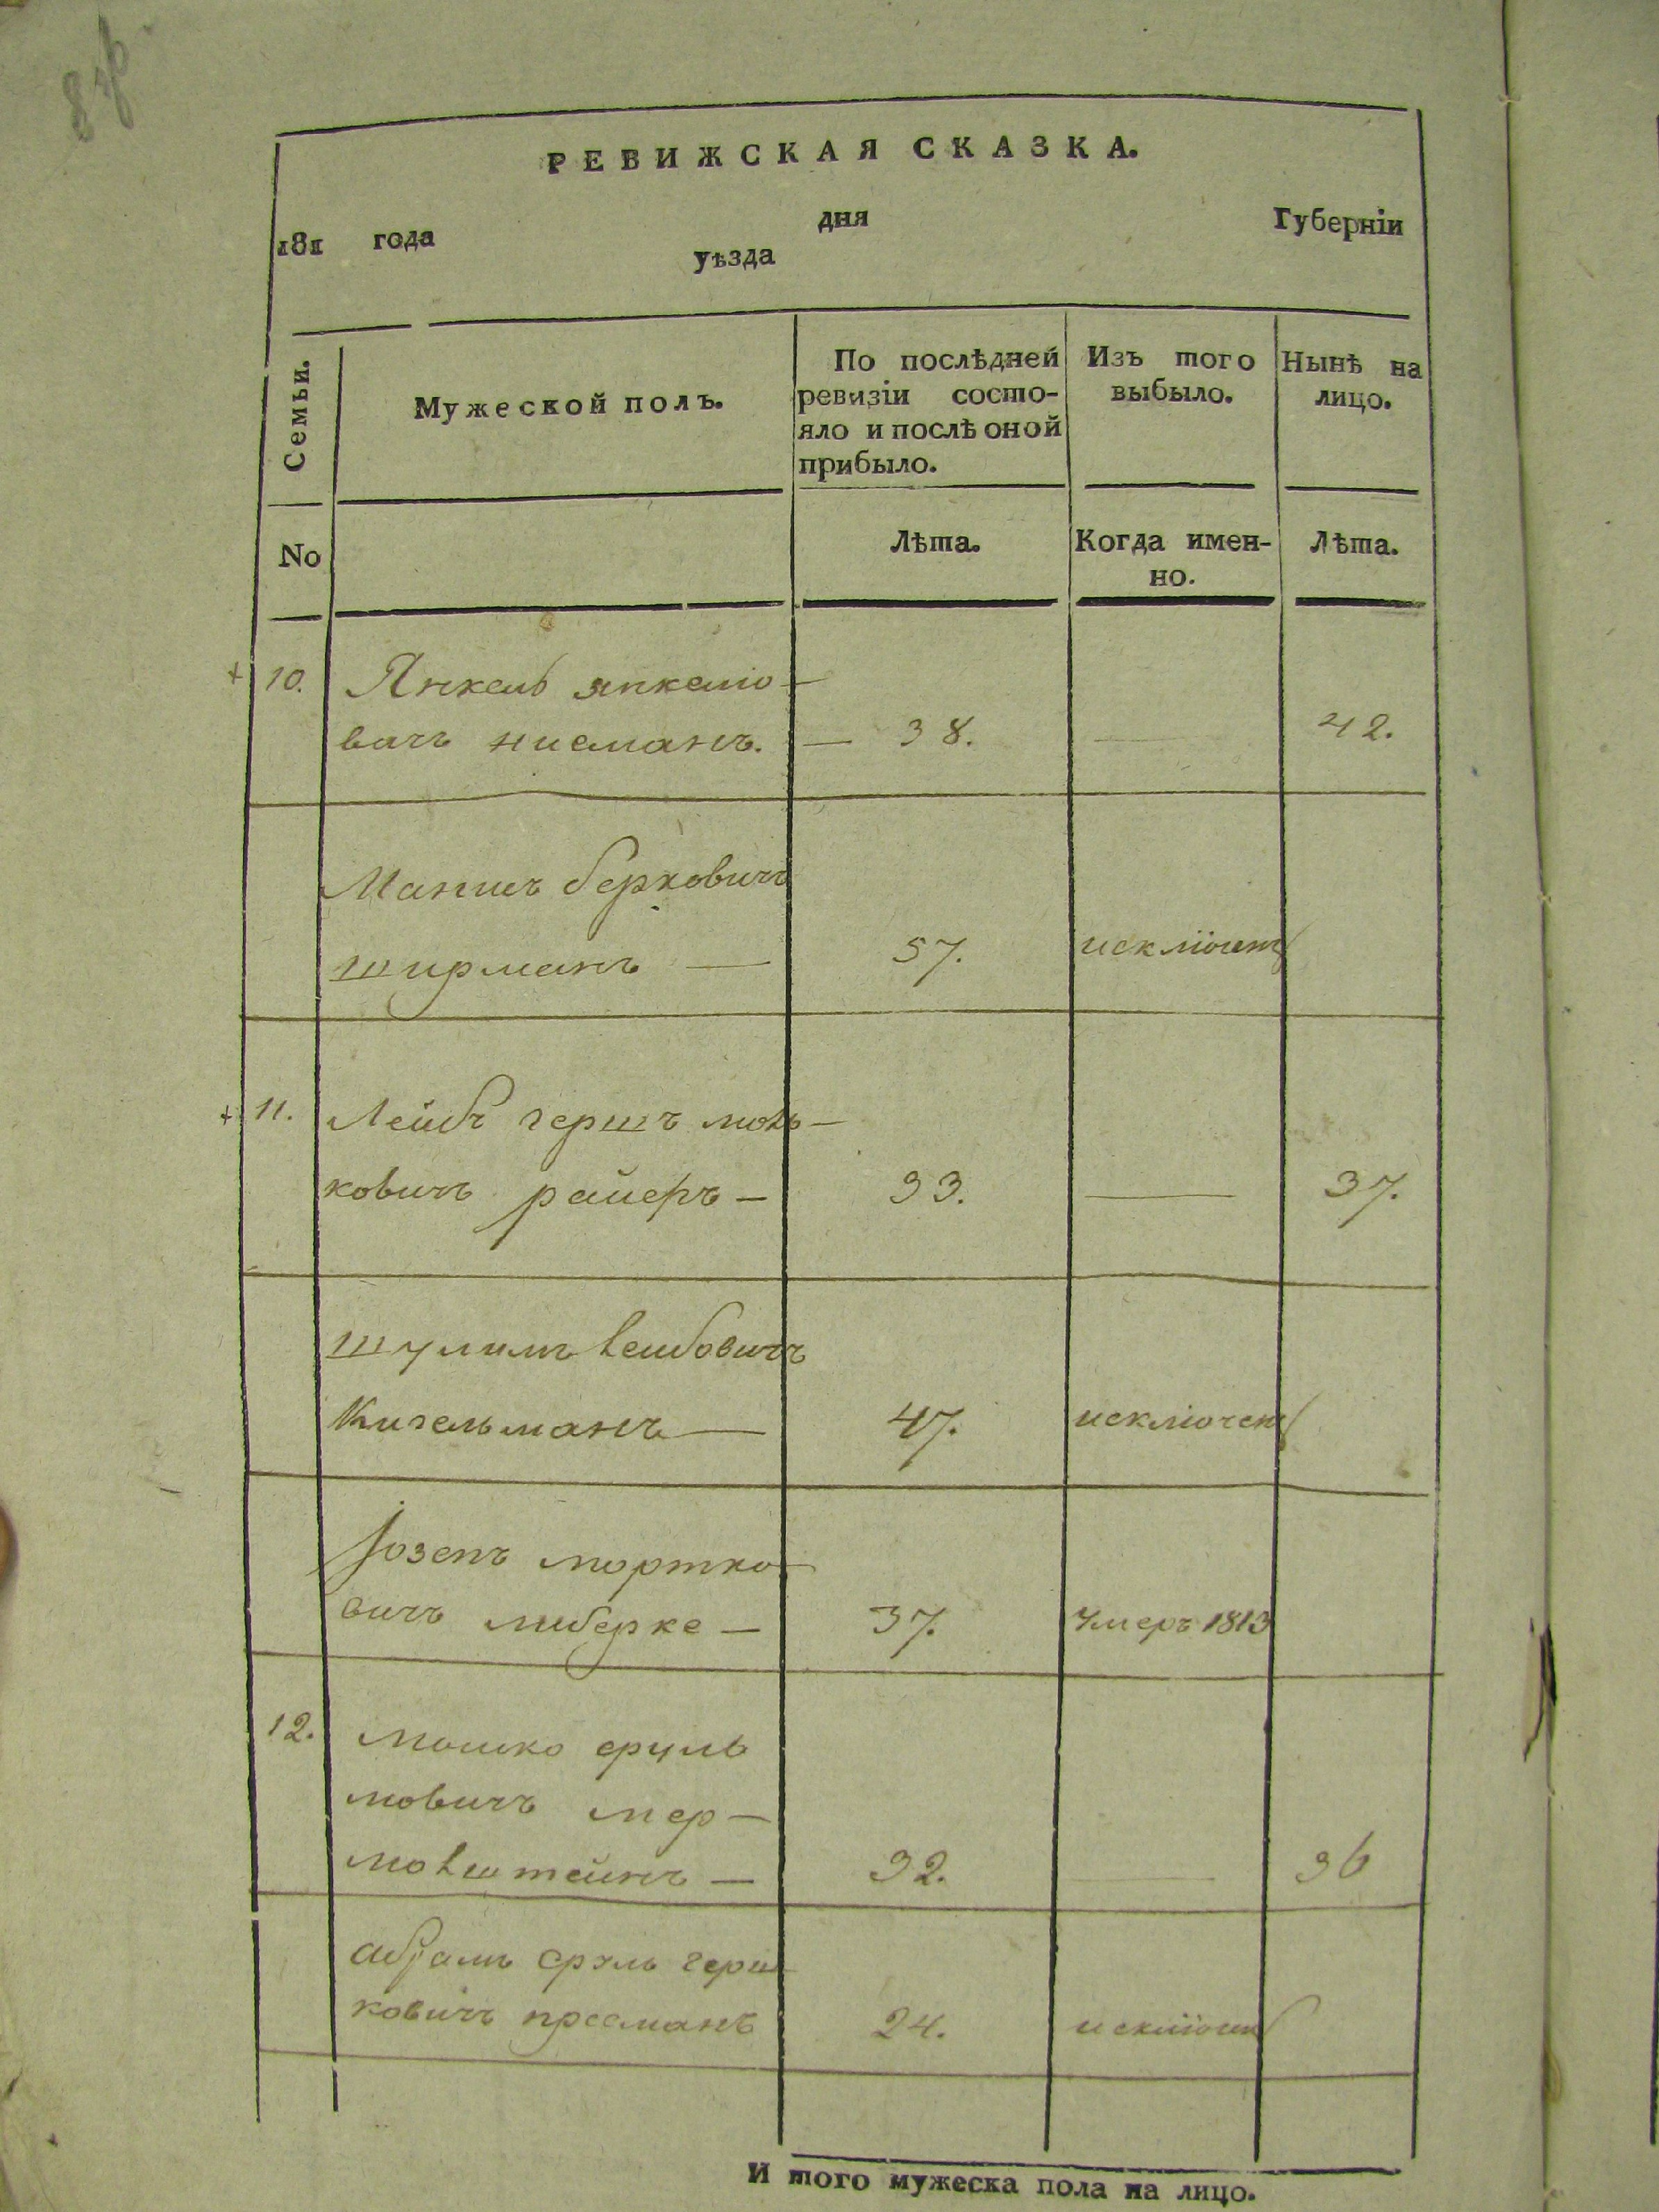 РЕВИЖСКАЯ СКАЗКА.
181 года дня Губерніи
уѣзда
Семьи.
Мужеской полъ.
По послѣдней ревизіи состояло и послѣ оной прибыло.
Изъ того выбыло.
Нынѣ на лицо.
No
Лѣта.
Когда именно.
Лѣта.
+ 10. Янкель янкелио-
вичъ нисманъ. — 38. — 42.
Манисъ берковичъ
ширманъ — 57. исключенъ
+ 11. Лейбъ гершъ мош-
ковичъ райеръ — 33. — 37.
шулимъ лейбовичъ
Кигельманъ — 47. исключенъ
Іозепъ мортко-
вичъ либерке — 37. умеръ 1813
12. мошко сруль
мовичъ мер-
мовштейнъ — 32. — 36
абрамъ сруль герш-
ковичъ пресманъ 24. исключенъ
И того мужеска пола на лицо.